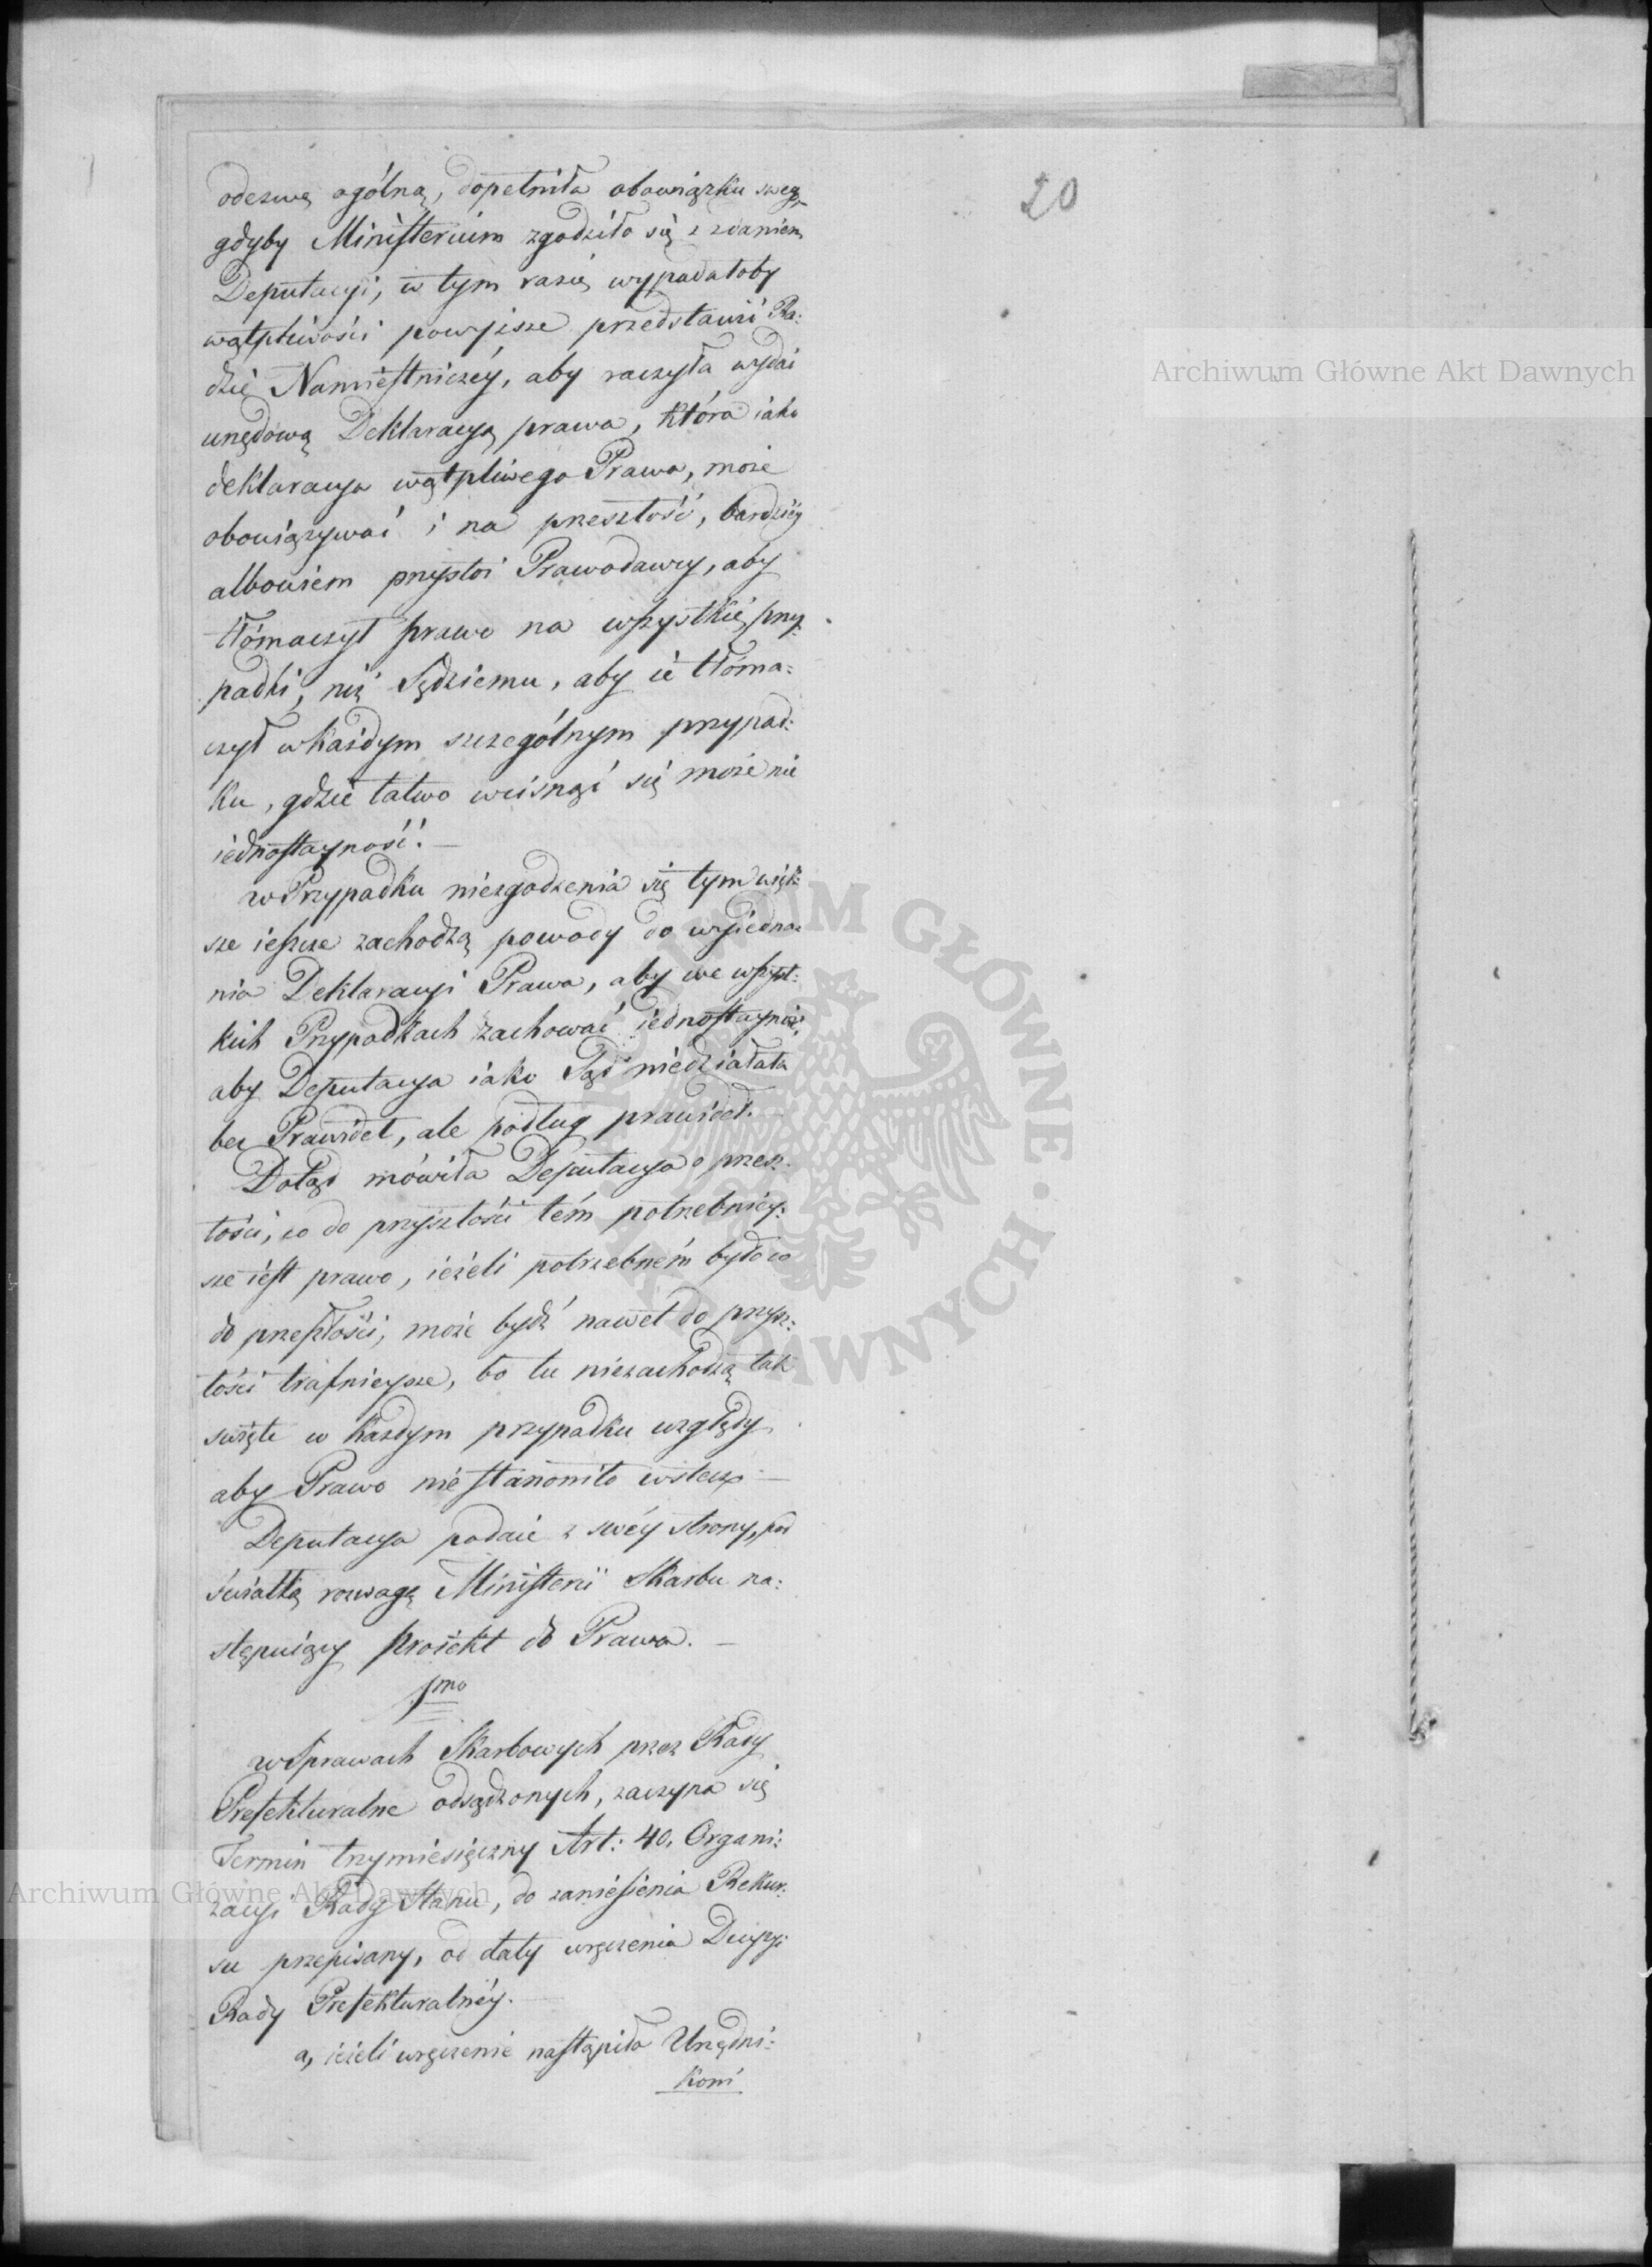 20
odezwę ogólną, dopełniła obowiązku sweg.
gdyby Ministerium zgodziło się z zdaniem
Deputacyi, w tym razie wypadałoby
wątpliwości powyższe przedstawić Ra:
dzie Namiestniczéy, aby raczyła wydać
urzędową Deklaracyą prawa, która iako
deklaracya wątpliwego Prawa, może
obowiązywać i na przeszłość, bardziéy
albowiem przystoi Prawodawcy, aby
tłómaczył prawo na wszystkie przy:
padki, niż Sędziemu, aby ie tłóma:
czył w każdym szczególnym przypad:
ku, gdzie łatwo wcisnąć się może nie
iednostayność. —
w Przypadku niezgodzenia się tym więk
sze ieszcze zachodzą powody do wyiedna:
nia Deklaracyi Prawa, aby we wszyst:
kich Przypadkach zachować iednostayność,
aby Deputacya iako Sąd niedziałała
bez Prawideł, ale podług prawideł. —
Dotąd mówiła Deputacya o przesz:
łości, co do przyszłości tém potrzebniey:
sze iest prawo, ieżeli potrzebném było co
do przeszłości, może bydź nawet do przysz:
łości trafnieysze, bo tu niezachodzą tak
święte w każdym przypadku względy
aby Prawo nie stanowiło wstecz. —
Deputacya podaie z swéy strony, pod
światłą rozwagę Ministerii Skarbu na:
stępuiący Proiekt do Prawa. —
1mo
w Sprawach Skarbowych przez Rady
Prefekturalne odsądzonych, zaczyna się
Termin trzymiesięczny Art: 40. Organi:
zacyi Rady Stanu, do zaniesienia Rekur:
su przepisany, od daty wręczenia Decyzyi
Rady Prefekturalnéy. —
a, ieżeli wręczenie nastąpiło Urzędni:
kowi
Archiwum Główne Akt Dawnych
Archiwum Główne Akt Dawnych
ARCHIWUM GŁÓWNE AKT DAWNYCH